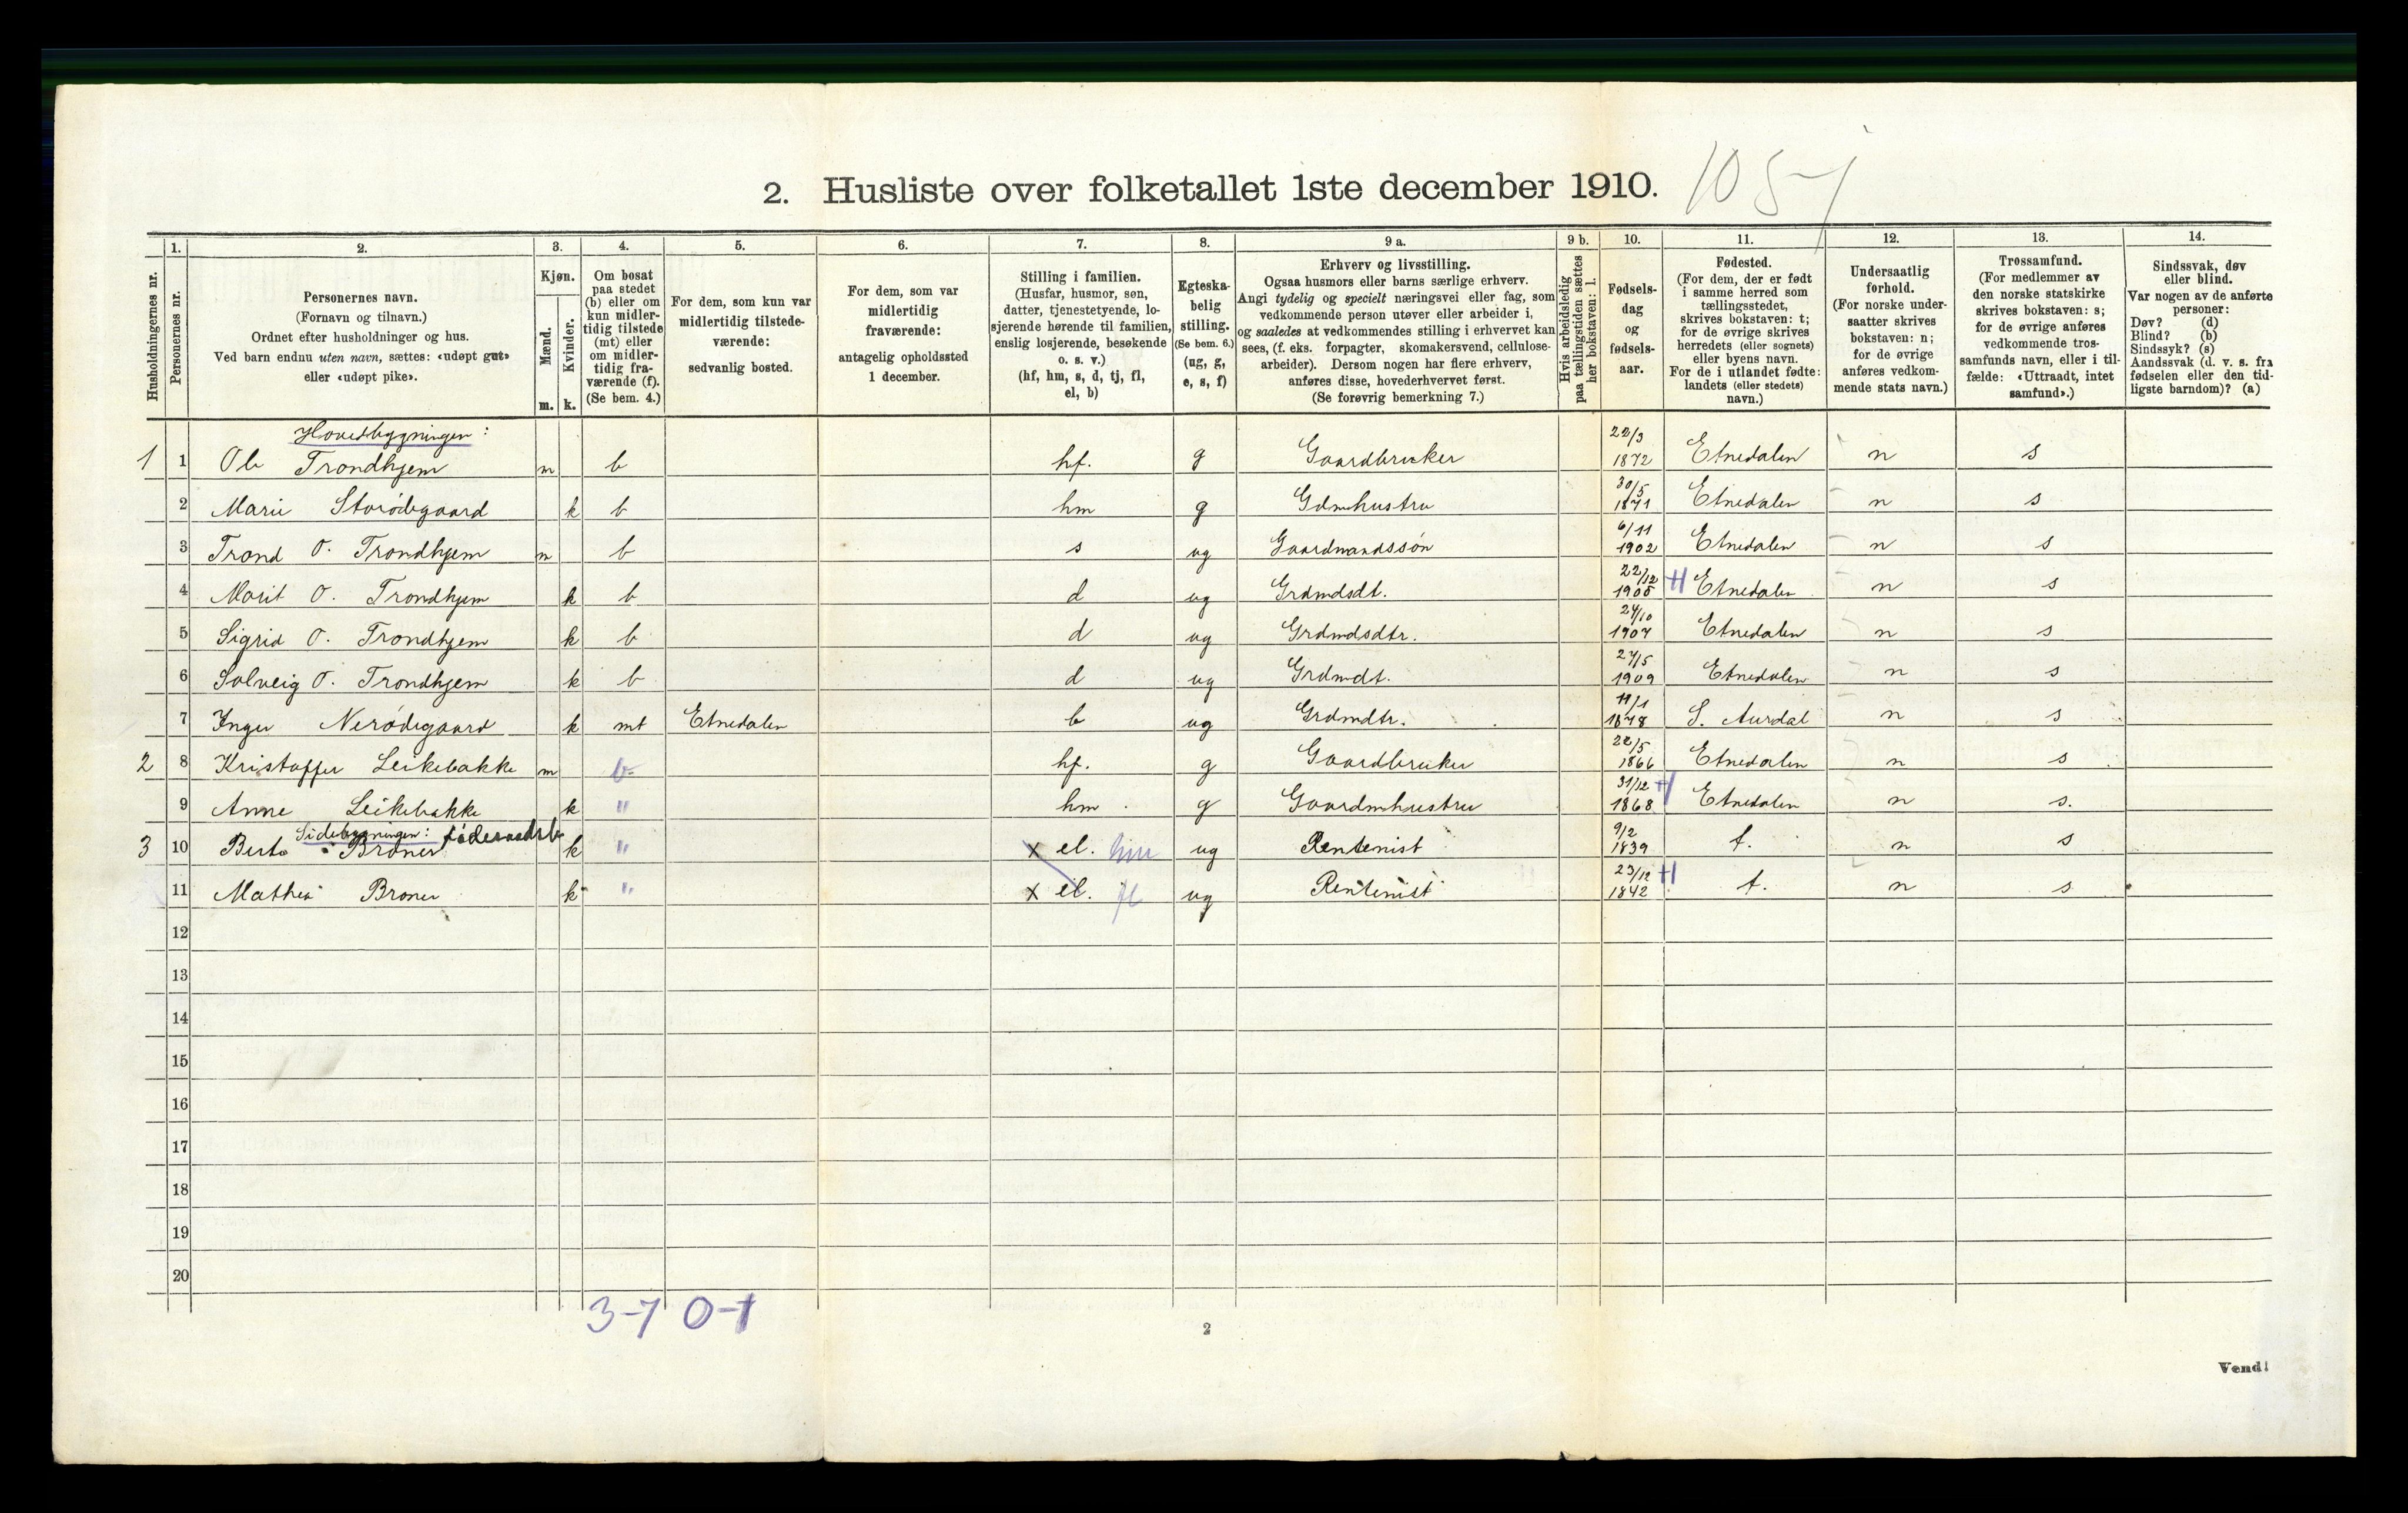 2. Husliste over folketallet 1ste december 1910.
1. 2. 3. 4. 5. 6. 7. 8. 9 a. 9 b. 10. 11. 12. 13. 14.
Husholdningernes nr.
Personernes nr.
Personernes navn.
(Fornavn og tilnavn.)
Ordnet efter husholdninger og hus.
Ved barn endnu uten navn, sættes: «udøpt gut»
eller «udøpt pike».
Kjøn.
Mænd.
Kvinder.
m. k.
Om bosat
paa stedet
(b) eller om
kun midler-
tidig tilstede
(mt) eller
om midler-
tidig fra-
værende (f).
(Se bem. 4.)
For dem, som kun var
midlertidig tilstede-
værende:
sedvanlig bosted.
For dem, som var
midlertidig
fraværende:
antagelig opholdssted
1 december.
Stilling i familien.
(Husfar, husmor, søn,
datter, tjenestetyende, lo-
sjerende hørende til familien,
enslig losjerende, besøkende
o. s. v.)
(hf, hm, s, d, tj, fl,
el, b)
Egteska-
belig
stilling.
(Se bem. 6.)
(ug, g,
e, s, f)
Erhverv og livsstilling.
Ogsaa husmors eller barns særlige erhverv.
Angi tydelig og specielt næringsvei eller fag, som
vedkommende person utøver eller arbeider i,
og saaledes at vedkommendes stilling i erhvervet kan
sees, (f. eks. forpagter, skomakersvend, cellulose-
arbeider). Dersom nogen har flere erhverv,
anføres disse, hovederhvervet først.
(Se forøvrig bemerkning 7.)
Hvis arbeidsledig
paa tællingstiden sættes
her bokstaven: l.
Fødsels-
dag
og
fødsels-
aar.
Fødested.
(For dem, der er født
i samme herred som
tællingsstedet,
skrives bokstaven: t;
for de øvrige skrives
herredets (eller sognets)
eller byens navn.
For de i utlandet fødte:
landets (eller stedets)
navn.)
Undersaatlig
forhold.
(For norske under-
saatter skrives
bokstaven: n;
for de øvrige
anføres vedkom-
mende stats navn.)
Trossamfund.
(For medlemmer av
den norske statskirke
skrives bokstaven: s;
for de øvrige anføres
vedkommende tros-
samfunds navn, eller i til-
fælde: «Uttraadt, intet
samfund».)
Sindssvak, døv
eller blind.
Var nogen av de anførte
personer:
Døv? (d)
Blind? (b)
Sindssyk? (s)
Aandssvak (d. v. s. fra
fødselen eller den tid-
ligste barndom)? (a)
Hovedbygningen:
1 1 Ole Trondhjem m b hf. g Gaardbruker 22/3 1872 Etnedalen n s
2 Marie Storødegaard k b hm g Gdmhustru 30/5 1871 Etnedalen n s
3 Trond O. Trondhjem m b s ug Gaardmandssøn 6/11 1902 Etnedalen n s
4 Marit O. Trondhjem k b d ug Grdmdsdt. 22/12 1905 Etnedalen n s
5 Sigrid O. Trondhjem k b d ug Grdmdsdtr. 24/10 1907 Etnedalen n s
6 Solveig O. Trondhjem k b d ug Grdmdt. 27/5 1909 Etnedalen n s
7 Inger Nerødegaard k mt Etnedalen b ug Grdmdtr. 11/1 1878 S. Aurdal n s
2 8 Kristoffer Leikebakke m b hf. g Gaardbruker 22/5 1866 Etnedalen n s
9 Anne Leikebakke k " hm g Gaardmhustru 31/12 1868 Etnedalen n s.
Sidebygningen: føderaadsb
3 10 Berte Broner k " x el. hm ug Rentenist 9/2 1839 t. n s
11 Mathea Broner k " x el. fl ug Rentenist 23/12 1842 t. n s
12
13
14
15
16
17
18
19
20
3-7 0-1
2
Vend!